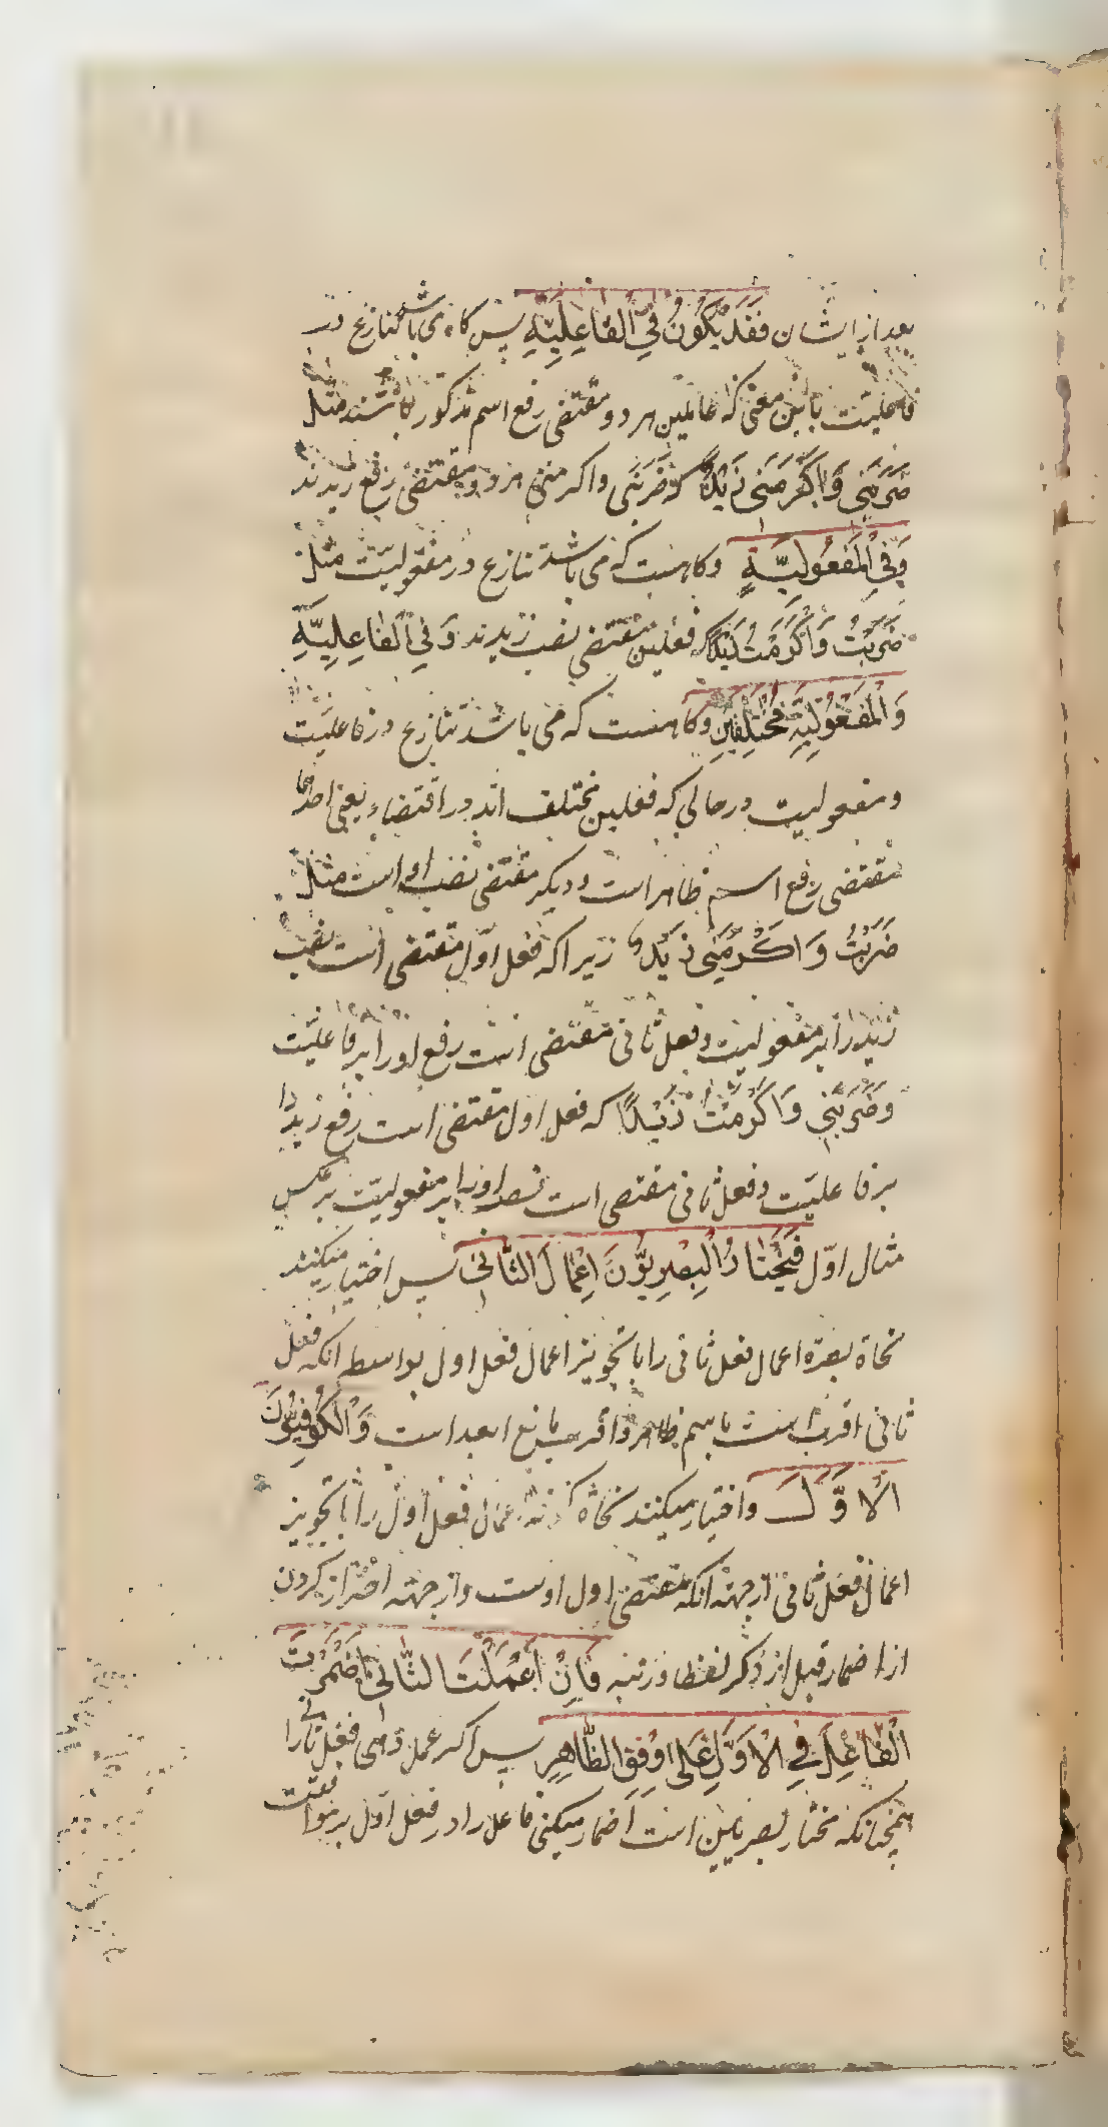 بعد از ایشان فَقَدْ یَکُونُ فِی الْفَاعِلِیَّةِ پس گاهی باشد تنازع در
فاعلیت باین معنی که عاملین هر دو مقتضی رفع اسم مذکور باشند مثل
ضَرَبَنِی وَ اَکْرَمَنِی زَیْدٌ که ضربنی و اکرمنی هر دو مقتضی رفع زیدند
وَفِی الْمَفْعُولِیَّةِ و گاه هست که می باشد تنازع در مفعولیت مثل
ضَرَبْتُ وَ اَکْرَمْتُ زَیْدًا که فعلین مقتضی نصب زیدند وَ فِی الْفَاعِلِیَّةِ
وَالْمَفْعُولِیَّةِ مُخْتَلِفَیْنِ و گاه هست که می باشد تنازع در فاعلیت
و مفعولیت در حالی که فعلین مختلف اند در اقتضاء یعنی احدهما
مقتضی رفع اسم ظاهر است و دیگر مقتضی نصب او است مثل
ضَرَبْتُ وَ اَکْرَمَنِی زَیْدٌ زیرا که فعل اوّل مقتضی است نصب
زید را بر مفعولیت و فعل ثانی مقتضی است رفع او را بر فاعلیّت
وَ ضَرَبَنِی وَ اَکْرَمْتُ زَیْدًا که فعل اول مقتضی است رفع زید را
بر فاعلیّت و فعل ثانی مقتضی است نصب او را بر مفعولیّت بر عکس
مثال اوّل فَیَخْتَارُ الْبَصْرِیُّونَ اِعْمَالَ الثَّانِی پس اختیار میکنند
نحاة بصره اعمال فعل ثانی را با تجویز اعمال فعل اول بواسطه انکه فعل
ثانی اقرب است باسم ظاهر و اقرب مانع ابعد است وَالْکُوفِیُّونَ
الْاَوَّلَ و اختیار میکنند نحاة کوفه اعمال فعل اول را با تجویز
اعمال فعل ثانی از جهته انکه مقتضی اول اوست و از جهته احتراز کردن
از اضمار قبل از ذکر لفظا و رتبه فَاِنْ اَعْمَلْتَ الثَّانِی اَضْمَرْتَ
الْفَاعِلَ فِی الْاَوَّلِ عَلی وَفْقِ الظَّاهِرِ پس اگر عمل دهی فعل ثانی را
همچنانکه مختار بصریین است اضمار میکنی فاعل را در فعل اوّل بر موافقت